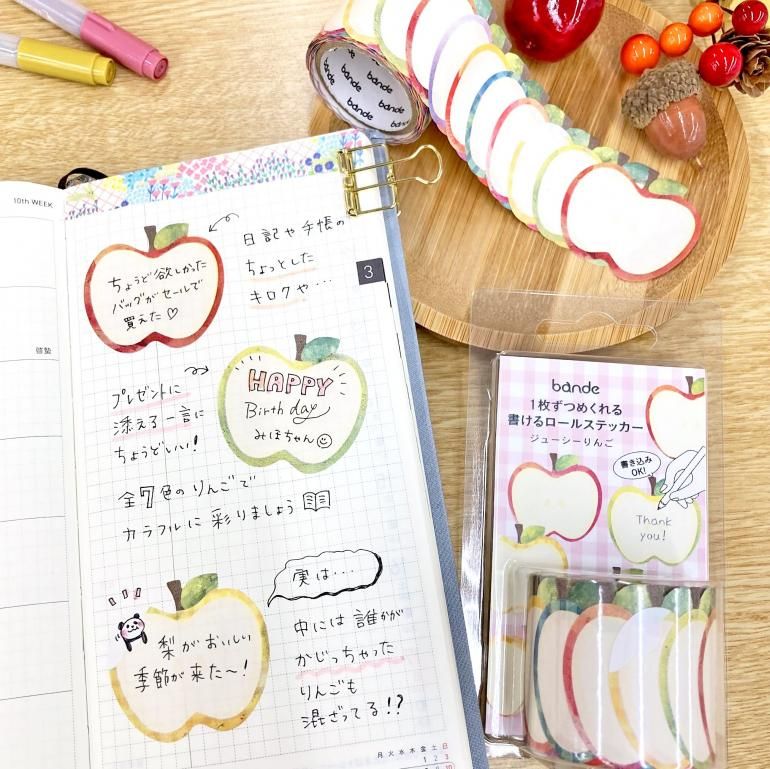 bande
bande
bande
bande
10th WEEK
啓蟄
3
日記や手帳の
ちょっとした
キロクや・・・
ちょうど欲しかった
バッグがセールで
買えた♡
プレゼントに
添える一言に
ちょうどいい!
HAPPY
Birthday
みほちゃん
全7色のりんごで
カラフルに彩りましょう
実は・・・
梨がおいしい
季節が来た〜!
中には誰かが
かじっちゃった
りんごも
混ざってる!?
月 火 水 木 金 土 日
1 2 3
10
bande
1枚ずつめくれる
書けるロールステッカー
ジューシーりんご
書き込み
OK!
Thank
you!